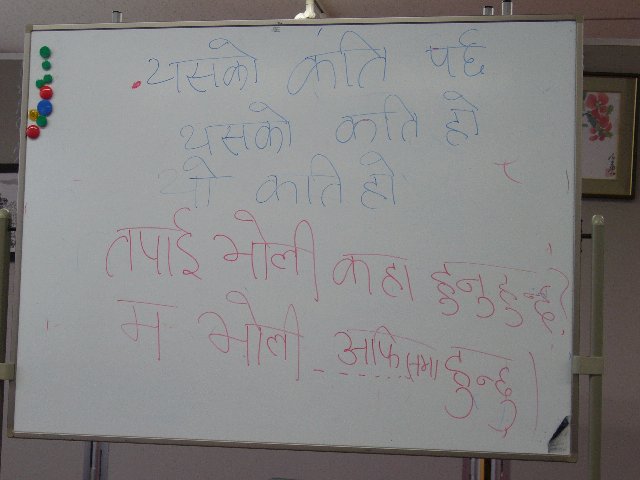 यसको कति पर्छ
यसको कति हो
यो कति हो
तपाई भोली कहा हुनुहुन्छ?
म भोली अफिसमा हुन्छु।